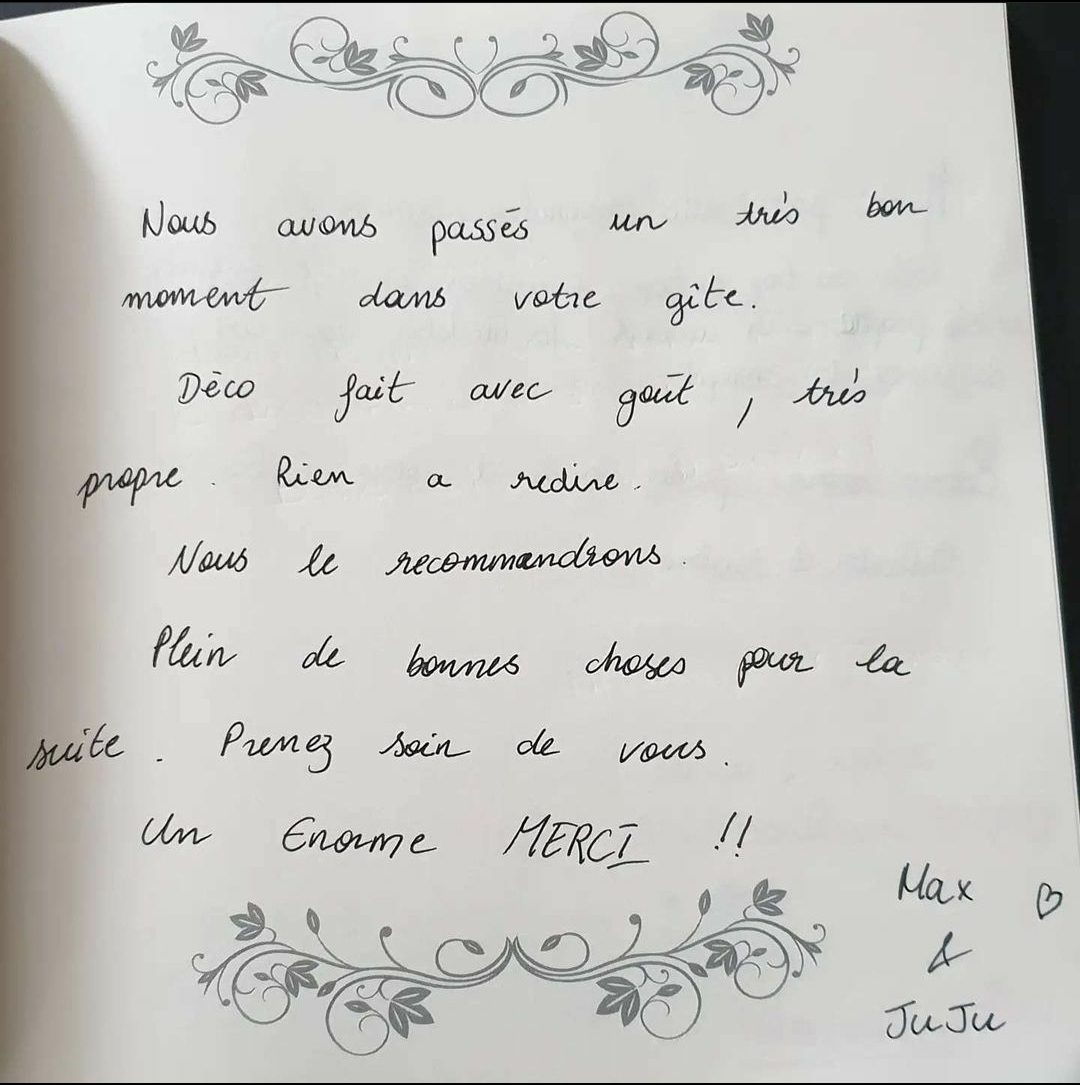 Nous avons passés un très bon
moment dans votre gîte.
Déco fait avec goût, très
propre. Rien a redire.
Nous le recommandrons.
Plein de bonnes choses pour la
suite. Prenez soin de vous.
Un Enorme MERCI !!
Max ♡
&
JuJu